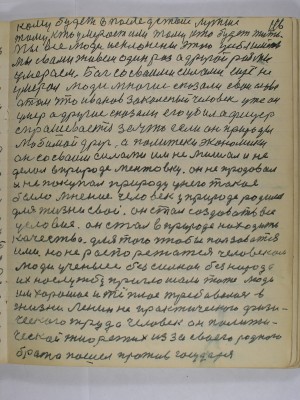 кому будет в последствии лучший 186
тому, кто умирает или тому кто будет жить.
Мы все люди исключены этого
мы сами живем один раз а другой раз мы
умераем. Бог со своими силами ещё не
умерал люди многие сказали свои
о том что иванов законный человек уже он
умер а другие сказали его убили
спрашивается за что если он природы
любимой друг, а политики экономики
он со своими силами им не мешал и не
делал в природе он не продовал
и не покупал природу у него такое
было мнение человек у природе родился
для жизни своей. он стал создовать все
условие. он стал в природе находить
качества. для того чтобы пользоватся
ими но не распоряжатся человеком
люди без силков без народа
их на службу пригло тоже люди
им хорошое и тёплое требовалося в
жизни Ленин не практического физи-
ческого труда человек он полити-
ческой из за своего родного
брата пошел против государя